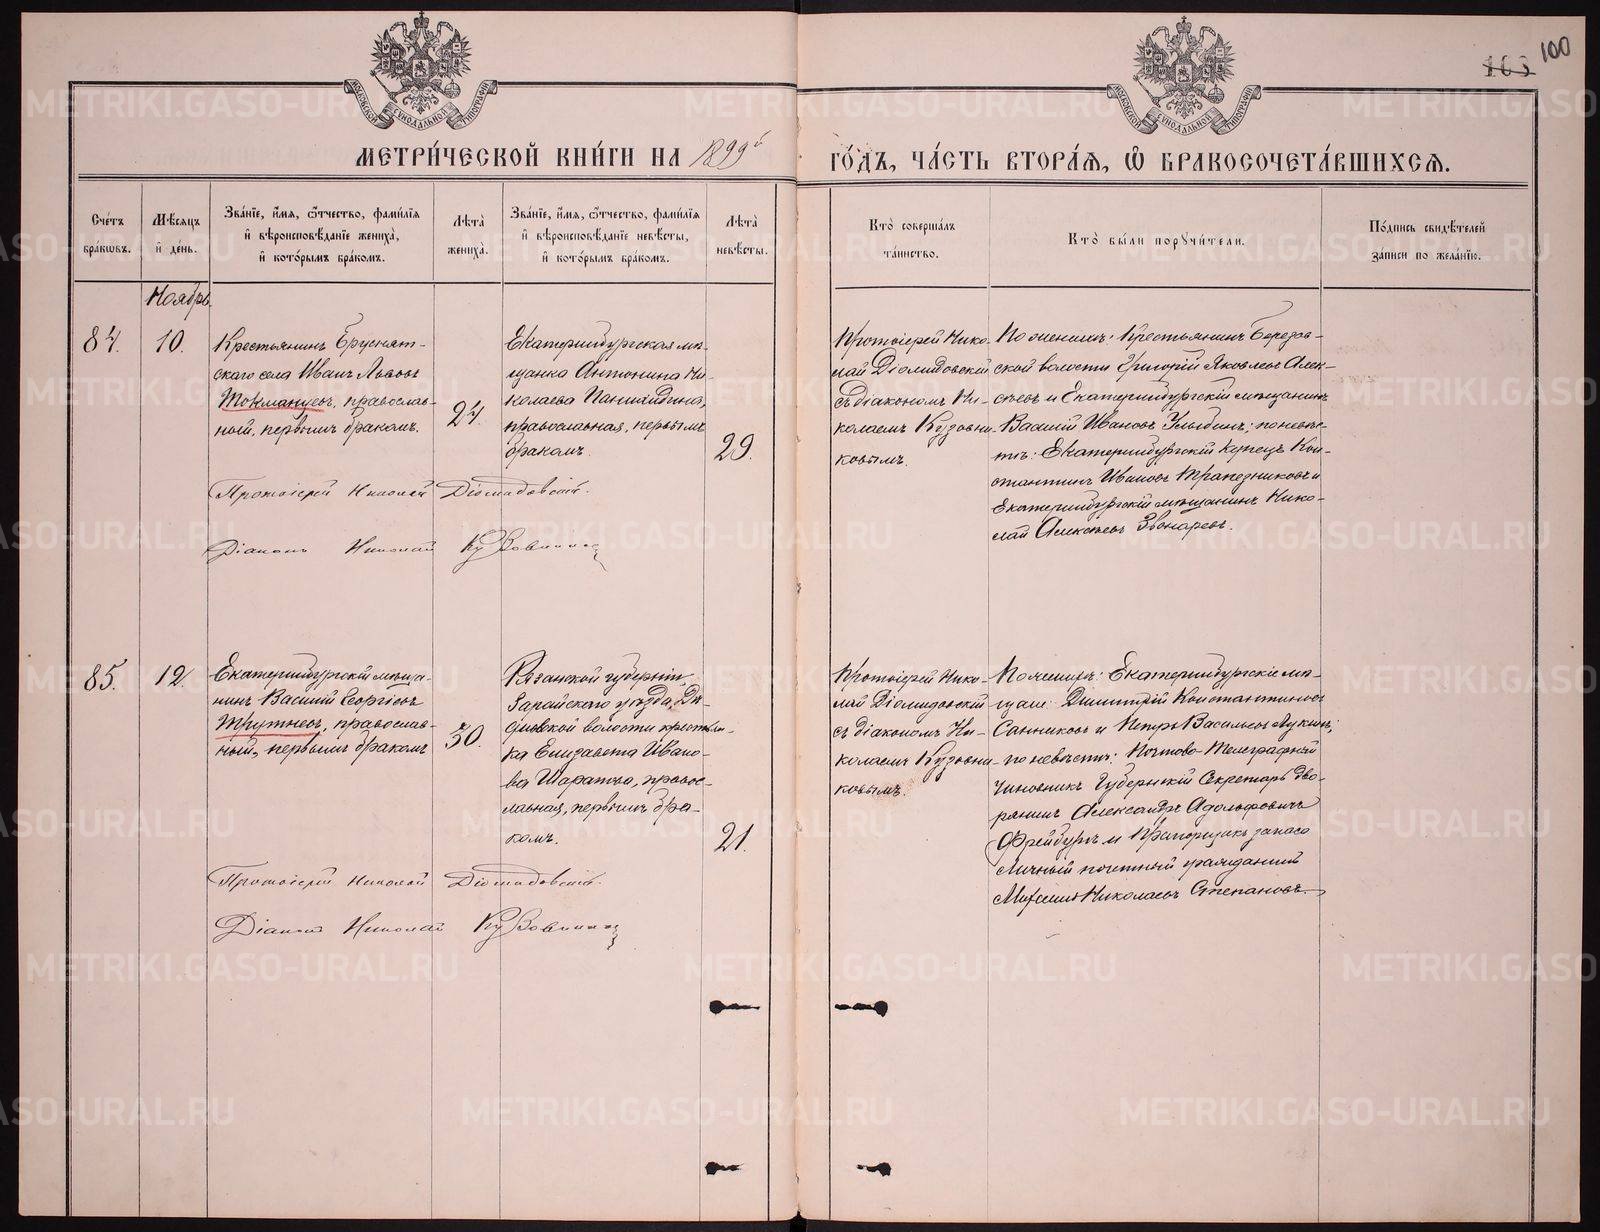 100
МЕТРИ́ЧЕСКОЙ КНИ́ГИ НА 1899й ГО́ДЪ, ЧА́СТЬ ВТОРА́Я, Ѽ БРАКОСОЧЕТА́ВШИХСЯ.
Сче́тъ бра́кѡвъ.
Мѣ́сяцъ и҆ де́нь.
Зва́нїе, и҆́мя, ѻ҆́тчество, фами́лїя
и҆ вѣроисповѣ́данїе жениха̀,
и҆ кото́рымъ бра́комъ.
Лѣта̀ жениха̀.
Зва́нїе, и҆́мя, ѻ҆́тчество, фами́лїя
и҆ вѣроисповѣ́данїе невѣ́сты,
и҆ кото́рымъ бра́комъ.
Лѣта̀ невѣ́сты.
Кто̀ соверша́лъ
та́инство.
Кто̀ бы́ли поручи́тели.
По́дпись свидѣ́телей
за́писи по жела́нїю.
Ноябрь.
84.
10.
Крестьянинъ Бруснят-
скаго села Иванъ Львовъ
Токманцевъ, православ-
ный, первымъ бракомъ.
24.
Екатеринбургская мѣ-
щанка Антонина Ни-
колаева Панихидина,
православная, первымъ
бракомъ.
29.
Протоіерей Нико-
лай Діомидовскій
съ діакономъ Ни-
колаемъ Кузовни-
ковымъ.
По женихѣ: Крестьянинъ Березов-
ской волости Григорій Яковлевъ Алек-
сѣевъ и Екатеринбургскій мѣщанинъ
Василій Ивановъ Улыбинъ; по невѣс-
тѣ: Екатеринбургскій купецъ Кон-
стантинъ Ивановъ Трапезниковъ и
Екатеринбургскій мѣщанинъ Нико-
лай Алексѣевъ Звонаревъ.
Протоіерей Николай Діомидовскій.
Діаконъ Николай Кузовников
85.
12.
Екатеринбургскій мѣща-
нинъ Василій Георгіевъ
Трутневъ, православ-
ный, первымъ бракомъ
30.
Рязанской губерніи
Зарайскаго уѣзда,
волости крестьян-
ка Елизавета Ивано-
ва, правос-
лавная, первымъ бра-
комъ.
21.
Протоіерей Нико-
лай Діомидовскій
съ діакономъ Ни-
колаемъ Кузовни-
ковымъ.
По женихѣ: Екатеринбургскіе мѣ-
щане: Димитрій Константиновъ
Санниковъ и Петръ Васильевъ Лукинъ;
по невѣстѣ: Почтово-Телеграфный
чиновникъ Губернскій Секретарь дво-
рянинъ Александръ Адольфовичъ
Фрейбургъ и Прапорщикъ запаса
Личный почетный гражданинъ
Николаевъ Степановъ.
Протоіерей Николай Діомидовскій.
Діаконъ Николай Кузовников
METRIKI.GASO-URAL.RU